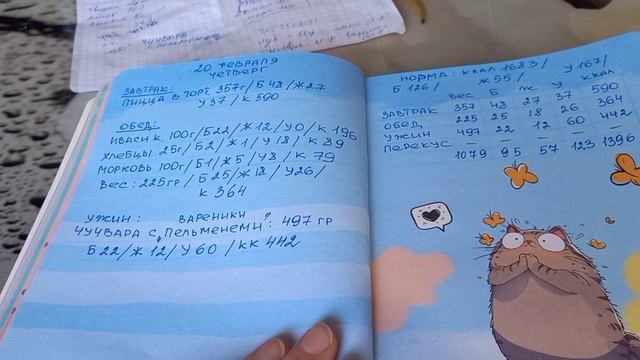 ЧУЧВАРА
ПЕЛЬМЕНЯМ
20 ФЕВРАЛЯ
ЧЕТВЕРГ
ЗАВТРАК:
ПИЦЦА В ТОРТ. 357г/Б 43/Ж 27
У 37/К 590
ОБЕД:
ИВАСИ К. 100г/Б22/Ж12/У0/К 196
ХЛЕБЦЫ 25г/Б2/Ж1/У18/К 89
МОРКОВЬ 100г/Б1/Ж5/У8/К 79
ВЕС: 225гр/Б25/Ж18/У26/
К 364
УЖИН: ВАРЕНИКИ
ЧУЧВАРА С „ПЕЛЬМЕНЕМИ": 497 ГР
Б22/Ж12/У60/КК 442
НОРМА: ККАЛ 1683/ У167/
Б 126/ Ж 55/
ВЕС Б Ж У ККАЛ
ЗАВТРАК 357 43 27 37 590
ОБЕД 225 25 18 26 364
УЖИН 497 22 12 60 442
ПЕРЕКУС – – – – –
1079 95 57 123 1396